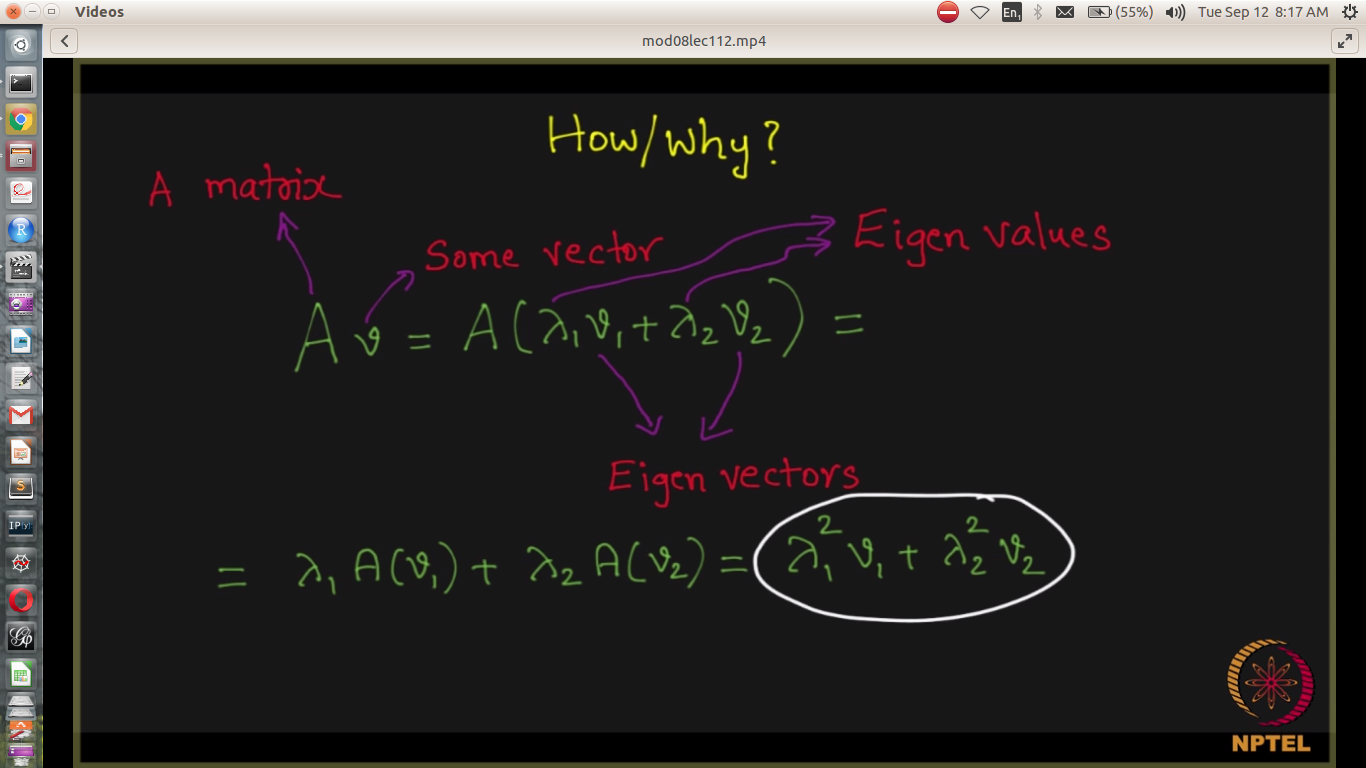 Videos
En₁
(55%)
Tue Sep 12 8:17 AM
mod08lec112.mp4
How/Why?
A matrix
Some vector
Eigen values
A v = A(λ₁v₁ + λ₂v₂) =
Eigen vectors
= λ₁ A(v₁) + λ₂ A(v₂) = λ₁²v₁ + λ₂²v₂
NPTEL